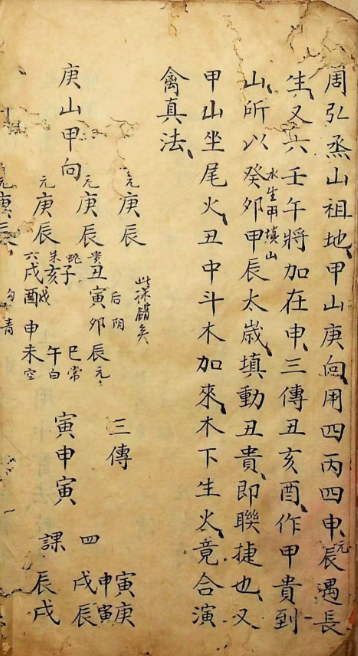 周弘烝山祖地甲山庚向用四丙四申元辰遇長
生又六壬午將加在申三傳丑亥酉作甲貴到
山所以癸卯甲辰太歲填動丑貴即聯捷也又
水生甲填山
甲山坐尾火丑中斗木加來木下生火竟合演
禽真法
庚山甲向
元庚辰
元庚辰
元庚辰
元庚辰
此课錯矣
后阴
貴丑寅卯辰元
子
巳常
朱亥
午白
六戌酉申未空
勾青
三傳
寅申寅
四課
寅庚
申寅
戌辰
辰戌